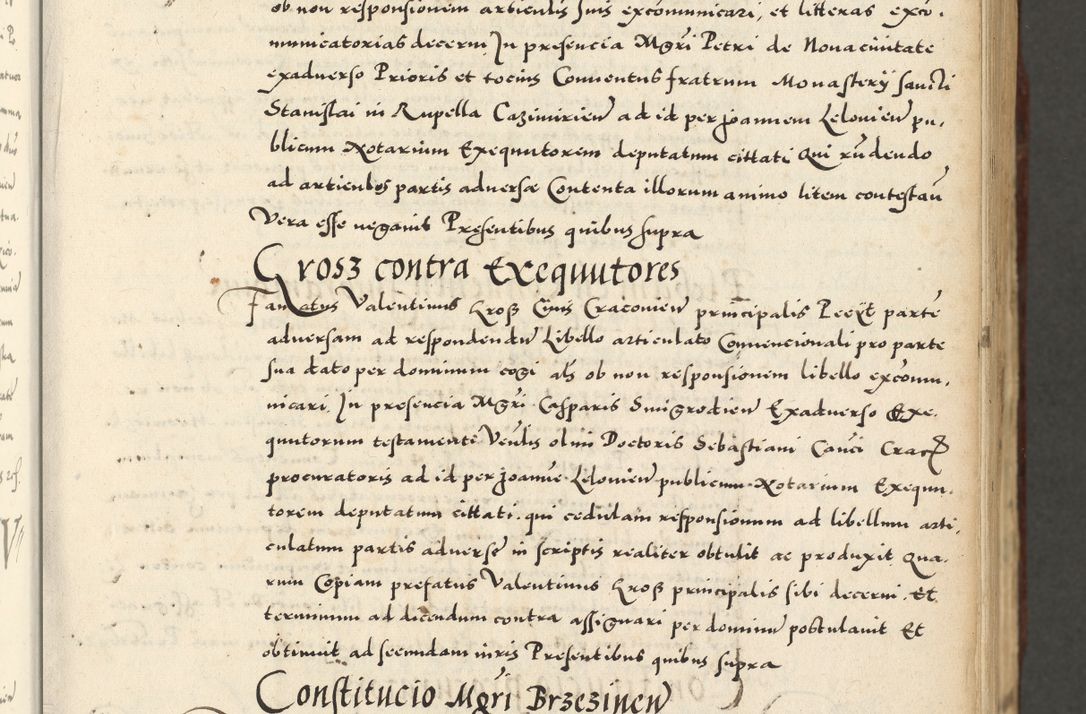 ob non responsionem articulis suis excomunicari, et litteras exco.
municatorias decerni In presencia Mgri Petri de Nova civitate
exadverso Prioris et tocius Conventus fratrum Monasterÿ sancti
Stanislai in Rupella Casimirien ad id per Joannem Lelovien pu.
blicum Notarium Exequutorem deputatum cittati Qui rñdendo
ad articulos partis adversæ Contenta illorum animo litem contestañ
Vera esse negavit Presentibus quibus supra
Grosz contra Exequutores
Famatus Valentinus Kroß Civis Cracovien principalis Peeÿt parte
adversam ad respondendũ Libello articulato Convencionali pro parte
sua dato per dominum cogi als ob non responsionem libello excomu.
nicari. In presencia Mgri Casparis Smigrodien Exadverso Exe.
quutorum testamenti Venlis olim Doctoris Sebastiani Canci Crac
procuratoris ad id per Joannẽ Lelovien publicum Notarium Exequu.
torem deputatum cittati. qui cedulam responsionum ad libellum arti.
culatum partis adversẽ in scriptis realiter obtulit ac produxit Qua.
rum Copiam prefatus Valentinus Kroß principalis sibi decerni. Et
terminum ad dicendum contra assignari per dominũ postulavit Et
obtinuit ad secundam iuris Presentibus quibus supra
Constitucio Mgri Brzezinen